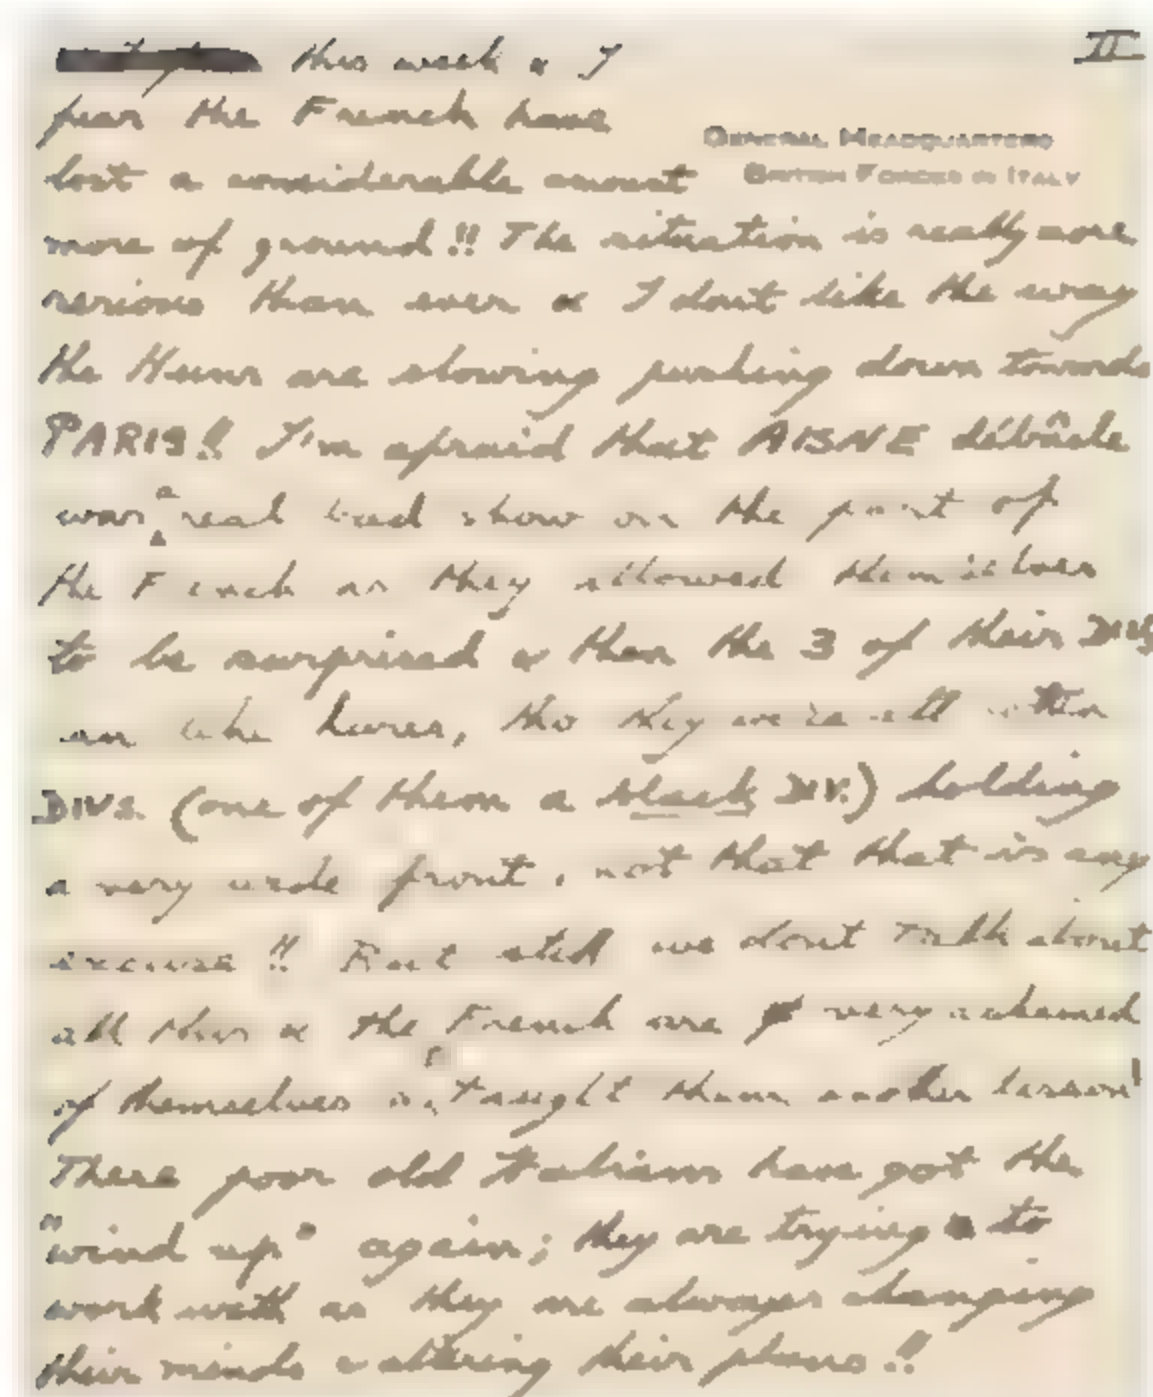 this week & I
II
fear the French have
GENERAL HEADQUARTERS
lost a considerable amount
BRITISH FORCES IN ITALY
more of ground!! The situation is really more
serious than ever & I dont like the way
the Huns are slowing pushing down towards
PARIS!! I'm afraid that AISNE débâcle
was a real bad show on the part of
the French as they allowed themselves
to be surprised & then the 3 of their DIVS
hours, tho they were all
DIVS. (one of them a black DIV.) holding
a very wide front, not that that is any
excuse!! But still we dont talk about
all this & the French are very ashamed
of themselves taught them another lesson!
These poor old Italians have got the
"wind up" again; they are trying to
work with as they are always changing
their minds & altering their plans!!